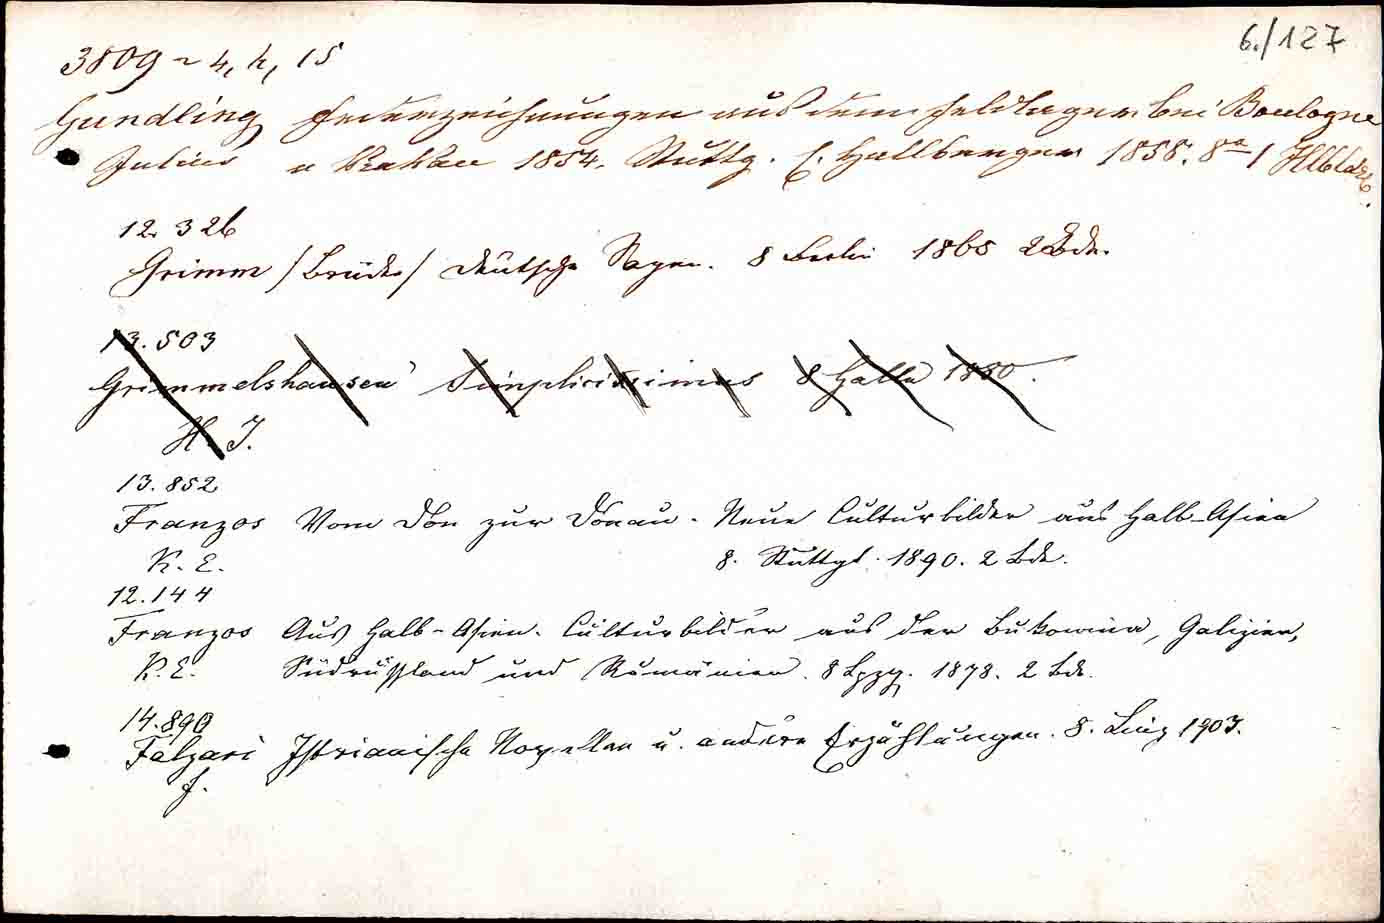 6./127
3809 ~ 4, h, 15
Gundling Federzeichnungen aus dem Feldlager bei Boulogne
Julius u Krakau 1854. Stuttg. E. Hallberger 1855. 8° 1 Hlbldrb.
12.326
Grimm /Brüder/ Deutsche Sagen. 8 Berlin 1865 2 Bde.
13.503
Grimmelshausen Simplicissimus 8 Halle 1880.
H. J.
13.852
Franzos Vom Don zur Donau. Neue Culturbilder aus Halb-Asien
K. E. 8. Stuttgt. 1890. 2 Bde.
12.144
Franzos Aus Halb-Asien. Culturbilder aus der Bukowina, Galizien,
K. E. Südrußland und Rumänien. 8 Lpzg. 1878. 2 Bde.
14.890
Falzari Istrianische Novellen u. andere Erzählungen. 8. Linz 1903.
F.